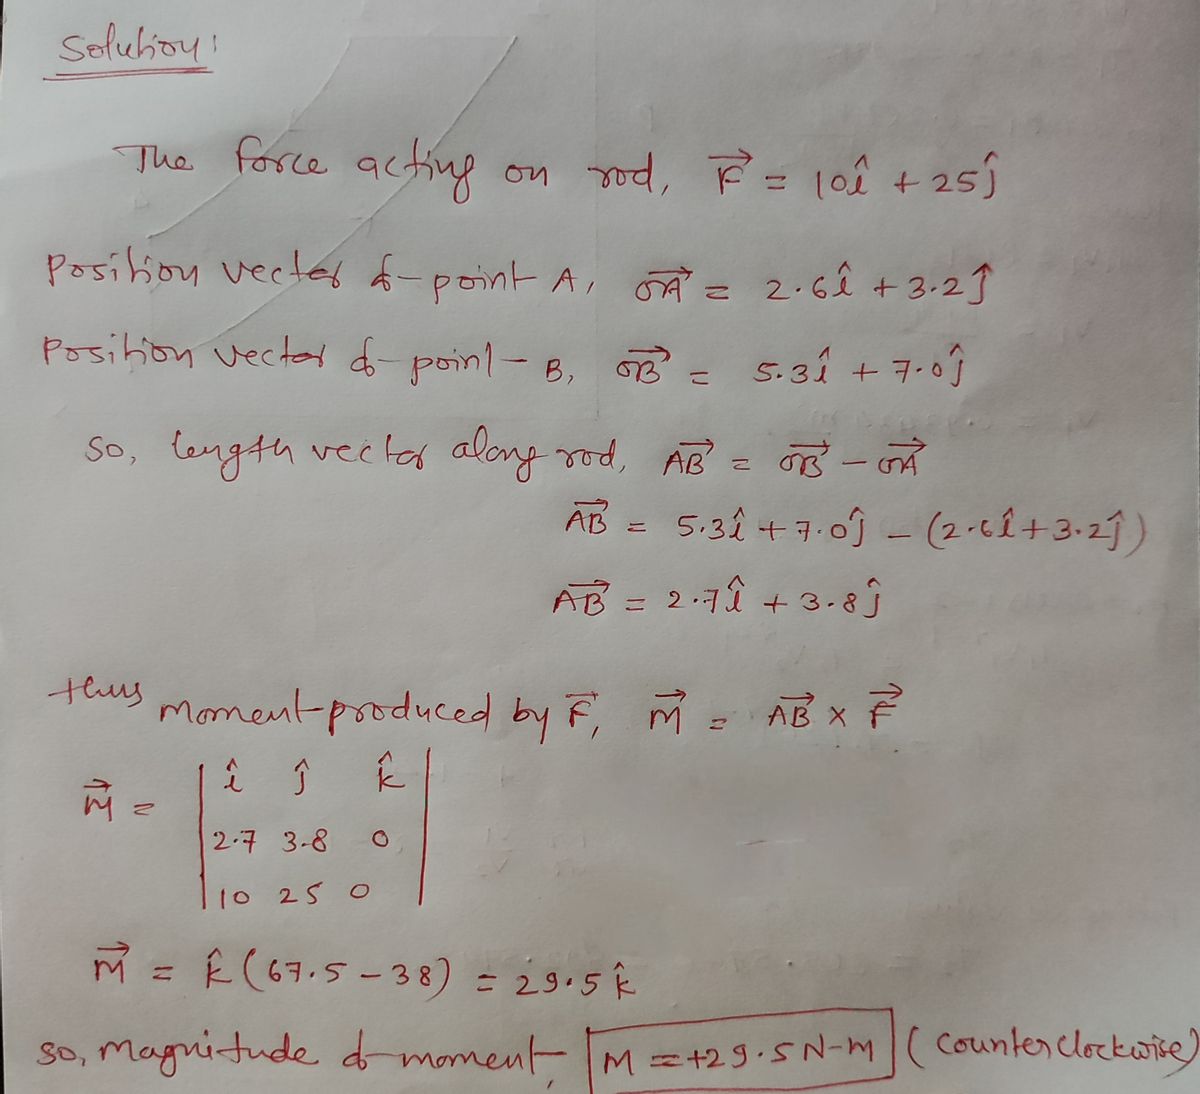 Solution:
The force acting on rod, F⃗ = 10î + 25ĵ
Position vector of point A, OA⃗ = 2.6î + 3.2ĵ
Position vector of point B, OB⃗ = 5.3î + 7.0ĵ
so, length vector along rod, AB⃗ = OB⃗ - OA⃗
AB⃗ = 5.3î + 7.0ĵ - (2.6î + 3.2ĵ)
AB⃗ = 2.7î + 3.8ĵ
thus moment produced by F⃗, M⃗ = AB⃗ × F⃗
M⃗ = | î ĵ k̂ |
2.7 3.8 0
10 25 0
M⃗ = k̂ (67.5 - 38) = 29.5 k̂
so, magnitude of moment, M = +29.5 N-m (counterclockwise)